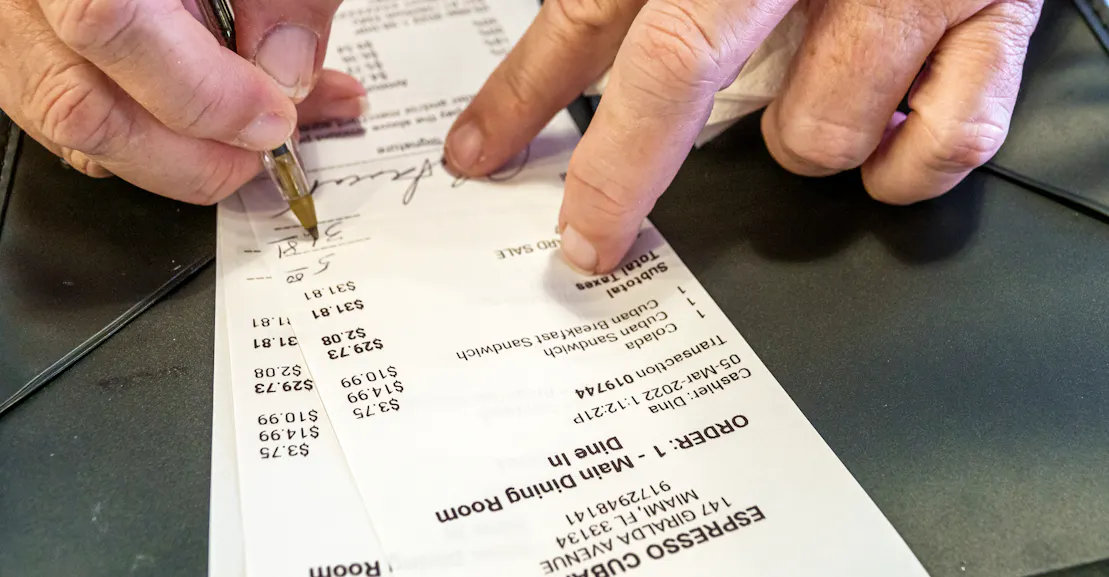 ESPRESSO CUBA
147 GIRALDA AVENUE
MIAMI, FL 33134
9172948141
ORDER: 1 - Main Dining Room
Dine In
Cashier: Dina
05-Mar-2022 1:12:21P
Transaction 019744
Colada $3.75
1 Cuban Sandwich $14.99
1 Cuban Breakfast Sandwich $10.99
Subtotal $29.73
Total Taxes $2.08
$31.81
ARD SALE $31.81
5 00
36 81
Signature
pay the above
Room
$3.75
$14.99
$10.99
$29.73
$2.08
31.81
11.81